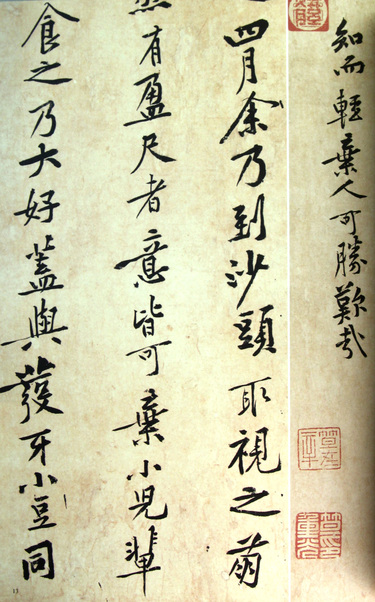 知而輕棄人可勝歎哉
四月余乃到沙頭取視之萌
然有盈尺者意皆可棄小兒輩
食之乃大好蓋與發牙小豆同
13